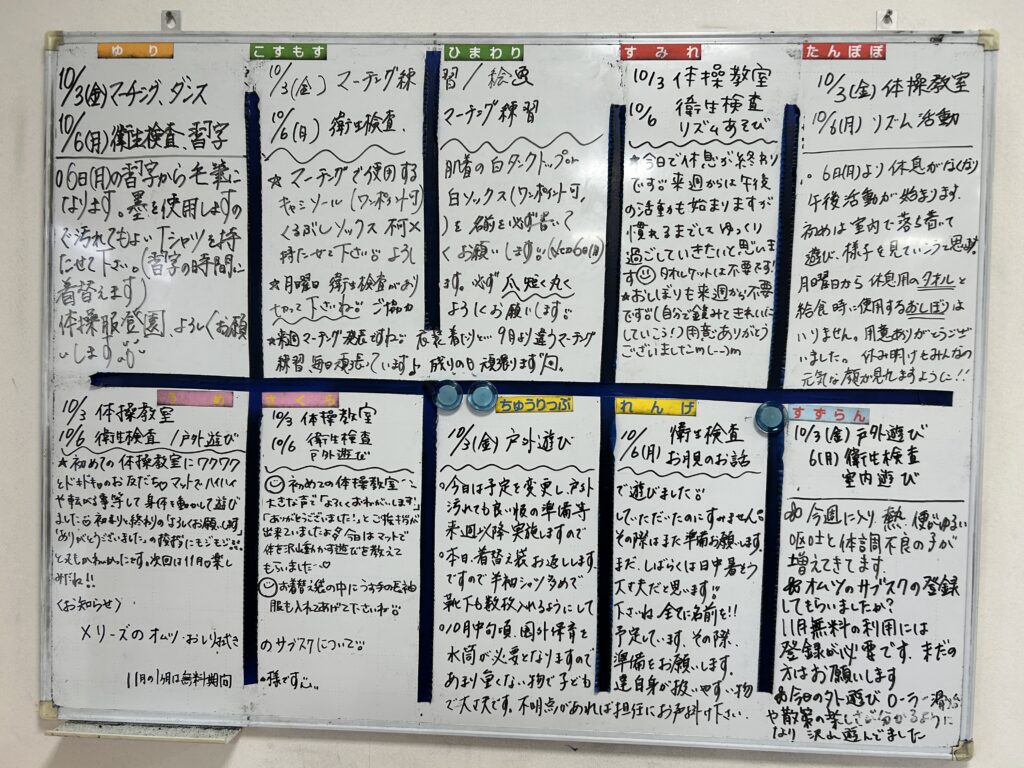 ゆり
10/3(金)マーチング、ダンス
10/6(月)衛生検査、習字
○6日(月)の習字から毛筆に
なります。墨を使用しますの
で汚れてもよいTシャツを持
たせて下さい。(習字の時間に
着替えます)
体操服登園 よろしくお願
いします。
こすもす
ひまわり
10/3(金) マーチング練習/絵画
10/6(月) 衛生検査、マーチング練習
☆マーチングで使用する肌着の白タンクトップor
キャミソール(ワンポイント可)白ソックス(ワンポイント可、
くるぶしソックス不可×)を名前を必ず書いて
持たせて下さい。よろしくお願いします。
★月曜日 衛生検査があります。必ず爪短く丸く
切って下さいね。ご協力よろしくお願いします。
練習、毎日頑張っています♪
すみれ
10/3 体操教室
10/6 衛生検査
リズムあそび
★今日で休息が終わり
です。来週からは午後
の活動も始まりますが
慣れるまでしてゆっくり
過ごしていきたいと思いま
す タオルケットは不要です!
★おしぼりも来週から不要
です。(自分で鏡みてきれいに
していこう!)用意ありがとう
ございましたm(__)m
たんぽぽ
10/3(金)体操教室
10/6(月) リズム活動
○6日(月)より休息がなくなり
午後活動が始まります。
初めは室内で落ち着いて
遊び、様子を見ていこうと思います。
月曜日から休息用のタオルと
給食時に使用するおしぼりは
いりません。用意ありがとうござ
いました。休み明けもみんなの
元気な顔が見れますように!!
うめ
10/3 体操教室
10/6 衛生検査/戸外遊び
★初めての体操教室にワクワク
とドキドキのお友だち○マットでハイハイ
や転がる等して身体を動かして遊び
ました 初まりと終わりの「よろしくお願いします」
「ありがとうございました」の挨拶にモジモジ
みだね!!
〈お知らせ〉
メリーズのオムツ・おしり拭きのサブスクについて
11月の1ヶ月は無料期間
さくら
10/3 体操教室
10/6 衛生検査
戸外遊び
初めての体操教室
大きな声で「よろしくおねがいします」
「ありがとうございました」とご挨拶が
出来ていました 今日はマットで
体を沢山動かす遊びを教えて
もらいました♡
お着替え袋の中にうす手の長袖
服も入れてあげて下さいね
の様です
ちゅうりっぷ
れんげ
10/3(金)戸外遊び
10/6(月) 衛生検査
お月見のお話
○今日は予定を変更し、戸外で遊びました
汚れても良い服の準備等していただいたのにすみません
来週以降実施しますのでその際はまた準備お願いします。
○本日、着替え袋お返しします。まだ、しばらくは日中暑そう
ですので半袖シャツ多めで大丈夫だと思います
靴下も数枚入れるようにして下さいね。全てに名前を!!
○10月中旬頃、園外保育を予定しています。その際、
水筒が必要となりますので準備をお願いします。
あまり重くない物で子ども達自身が扱いやすい物
で大丈夫です。不明点があれば担任にお声掛け下さい。
すずらん
10/3(金)戸外遊び
6(月) 衛生検査
室内遊び
今週に入り、熱、便がゆるい
嘔吐と体調不良の子が
増えてきてます。
オムツのサブスクの登録
してもらいましたか?
11月無料の利用には
登録が必要です。まだの
方はお願いします
今日の外遊び ローラー滑り台
や散策の楽しさが分かるように
なり 沢山遊んでました